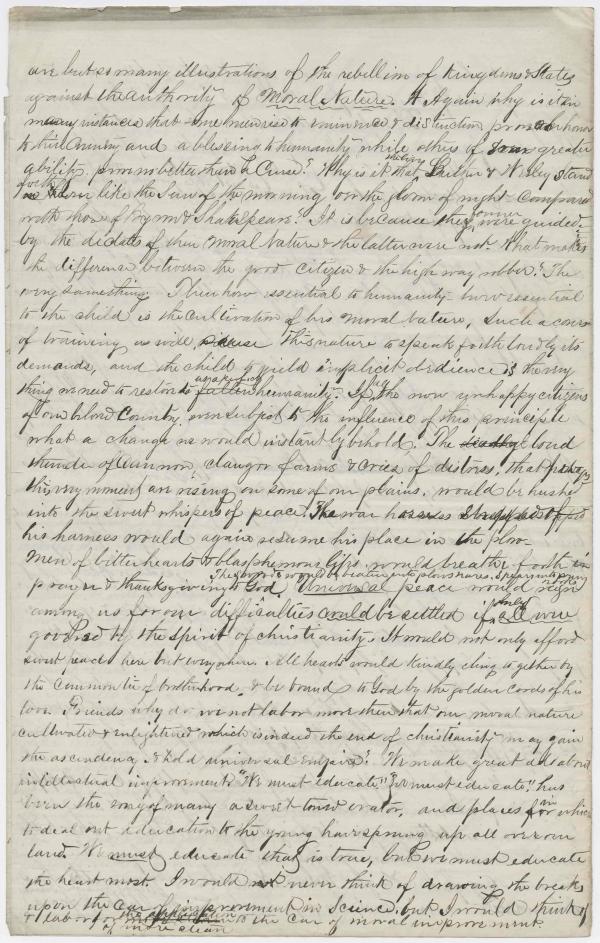 are but so many illustrations of the rebellion of Kingdoms & States
against the authority of Moral Nature. Again why is it in
many instances that some men rise to eminence & distinction prove an honor
to their Country and a blessing to humanity while others of greater
ability prove no better than a Curse? Why is it that Luther & Wesley stand
forth like the Sun of the morning over the gloom of night compared
with those of Byron & Shakespeare? It is because the former were guided
by the dictates of their Moral Nature & the latter were not. What makes
the difference between the good citizen & the high way robber? The
very same thing. Then how essential to humanity how essential
to the child is the cultivation of his Moral Nature. Such a course
of training as will cause this nature to speak forth loudly its
demands, and the child to yield implicit obedience is the very
thing we need to restore fallen humanity. If the now unhappy citizens
of our beloved Country, were subject to the influence of this principle
what a change we would instantly behold. The loud
thunder of Cannon, clangor of arms & cries of distress, that perhaps
this very moment are rising on some of our plains, would be hushed
into the sweet whispers of peace. The war horse stripped of
his harness would again resume his place in the plow
Men of bitter hearts & blasphemous lips, would breathe forth in
The swords would be beaten into plowshares. Spears into pruning hooks
prayer & thanksgiving to God. Universal peace would reign
among us for our difficulties could be settled if only all were
governed by the spirit of christianity. It would not only afford
sweet peace here but everywhere. All hearts would kindly cling together by
the common tie of brotherhood, & be bound to God by the golden cords of his
love. Friends why do we not labor more then that our moral nature
cultivated & enlightened which is indeed the end of christianity may gain
the ascendency, & hold universal empire? We make great ado about
intellectual improvement. "We must educate" "We must educate" has
been the song of many a sweet-toned orator, and places for in which
to deal out education to the young have sprung up all over our
land. We must educate that is true, but we must educate
the heart most. I would not never think of drawing the breaks
upon the Car of improvement in Science, but I would think of
& labor for the application
of to the car of moral improvement.